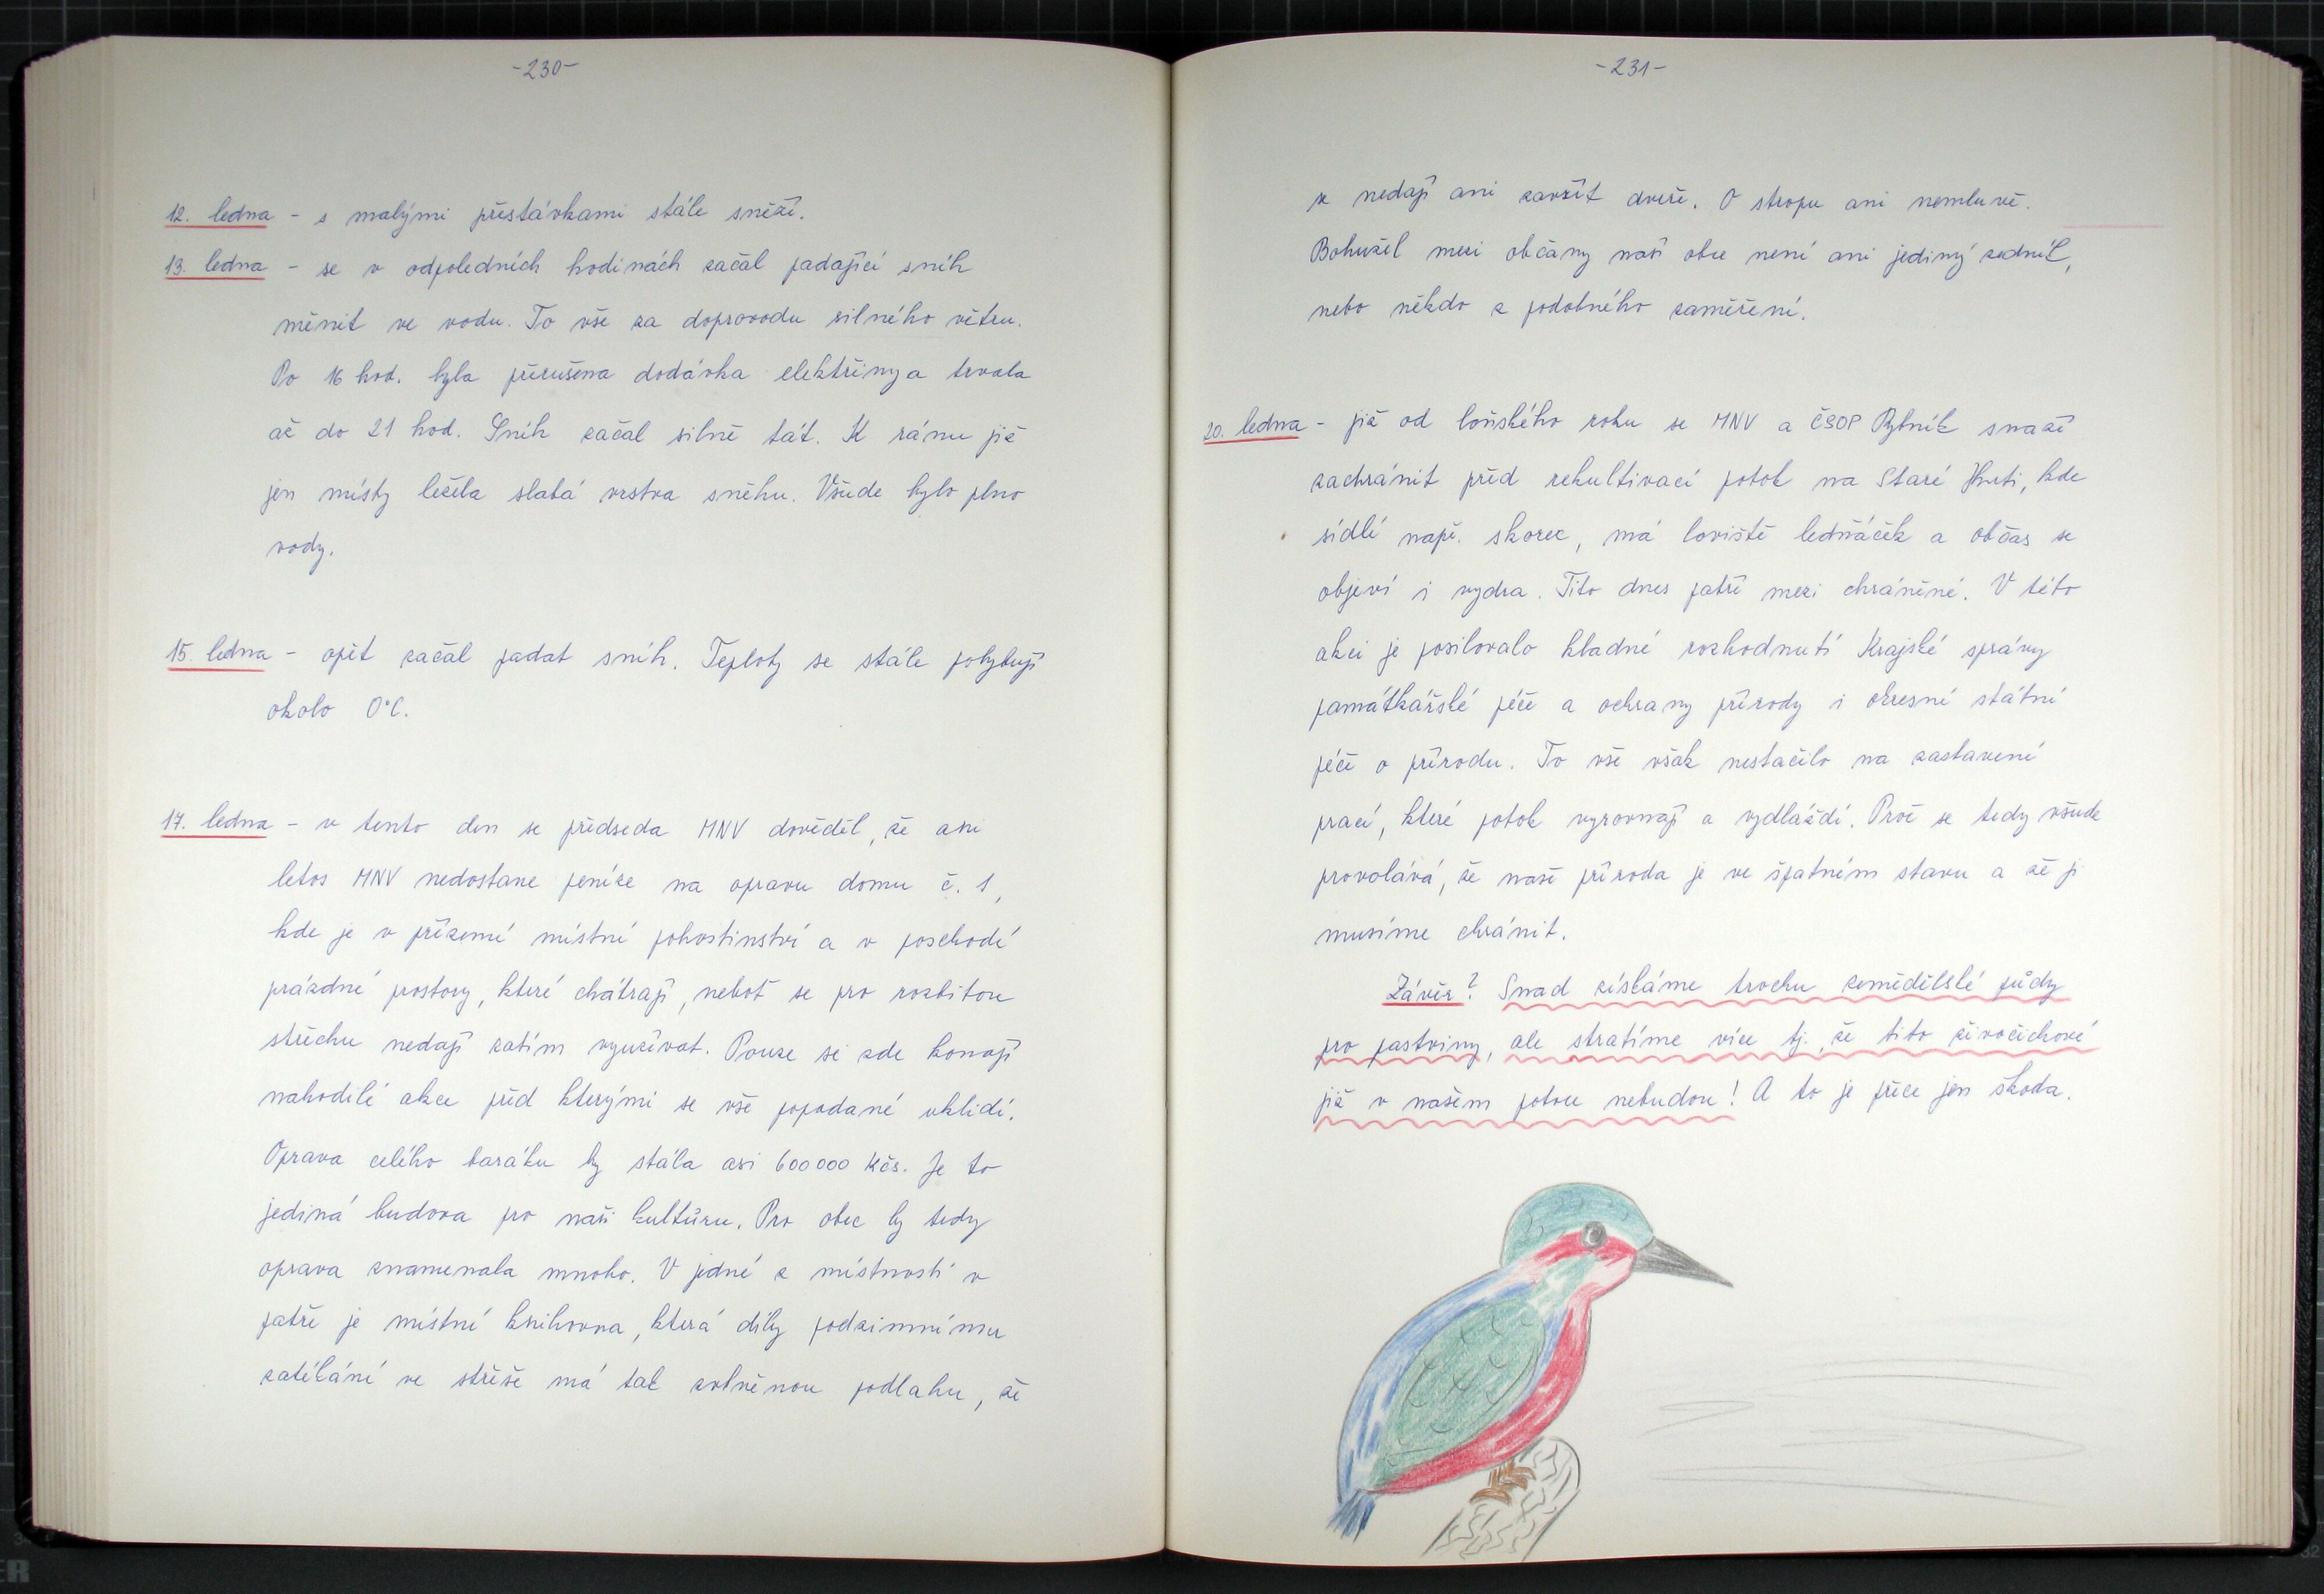 -230-
12. ledna - s malými přestávkami stále sněží.
13. ledna - se v odpoledních hodinách začal padající sníh
měnit ve vodu. To vše za doprovodu silného větru.
Po 16 hod. byla přerušena dodávka elektřiny a trvala
až do 21 hod. Sníh začal silně tát. K ránu již
jen místy ležela slabá vrstva sněhu. Všude bylo plno
vody.
15. ledna - opět začal padat sníh. Teploty se stále pohybují
okolo 0°C.
17. ledna - v tento den se předseda MNV dověděl, že ani
letos MNV nedostane peníze na opravu domu č. 1,
kde je v přízemí místní pohostinství a v poschodí
prázdné prostory, které chátrají, neboť se pro rozbitou
střechu nedají zatím využívat. Pouze se zde konají
nahodilé akce před kterými se vše popadané uklidí.
Oprava celého baráku by stála asi 600 000 Kčs. Je to
jediná budova pro naši kultúru. Pro obec by tedy
oprava znamenala mnoho. V jedné z místností v
patře je místní knihovna, která díky podzimnímu
zatékání ve střeše má tak zvlněnou podlahu, že
-231-
se nedají ani zavřít dveře. O stropu ani nemluvě.
Bohužel mezi občany naší obce není ani jediný zedník,
nebo někdo z podobného zaměření.
20. ledna - již od loňského roku se MNV a ČSOP Rybník snaží
zachránit před rekultivací potok na Staré Huti, kde
sídlí např. skorec, má loviště ledňáček a občas se
objeví i vydra. Tito dnes patří mezi chráněné. V této
akci je posilovalo kladné rozhodnutí Krajské správy
památkářské péče a ochrany přírody i okresní státní
péčí o přírodu. To vše však nestačilo na zastavení
prací, které potok vyrovnají a vydláždí. Proč se tedy všude
provolává, že naše příroda je ve špatném stavu a že ji
musíme chránit.
Závěr? Snad získáme trochu zemědělské půdy
pro pastviny, ale stratíme více tj., že tito živočichové
již v našem potoce nebudou! A to je přece jen škoda.